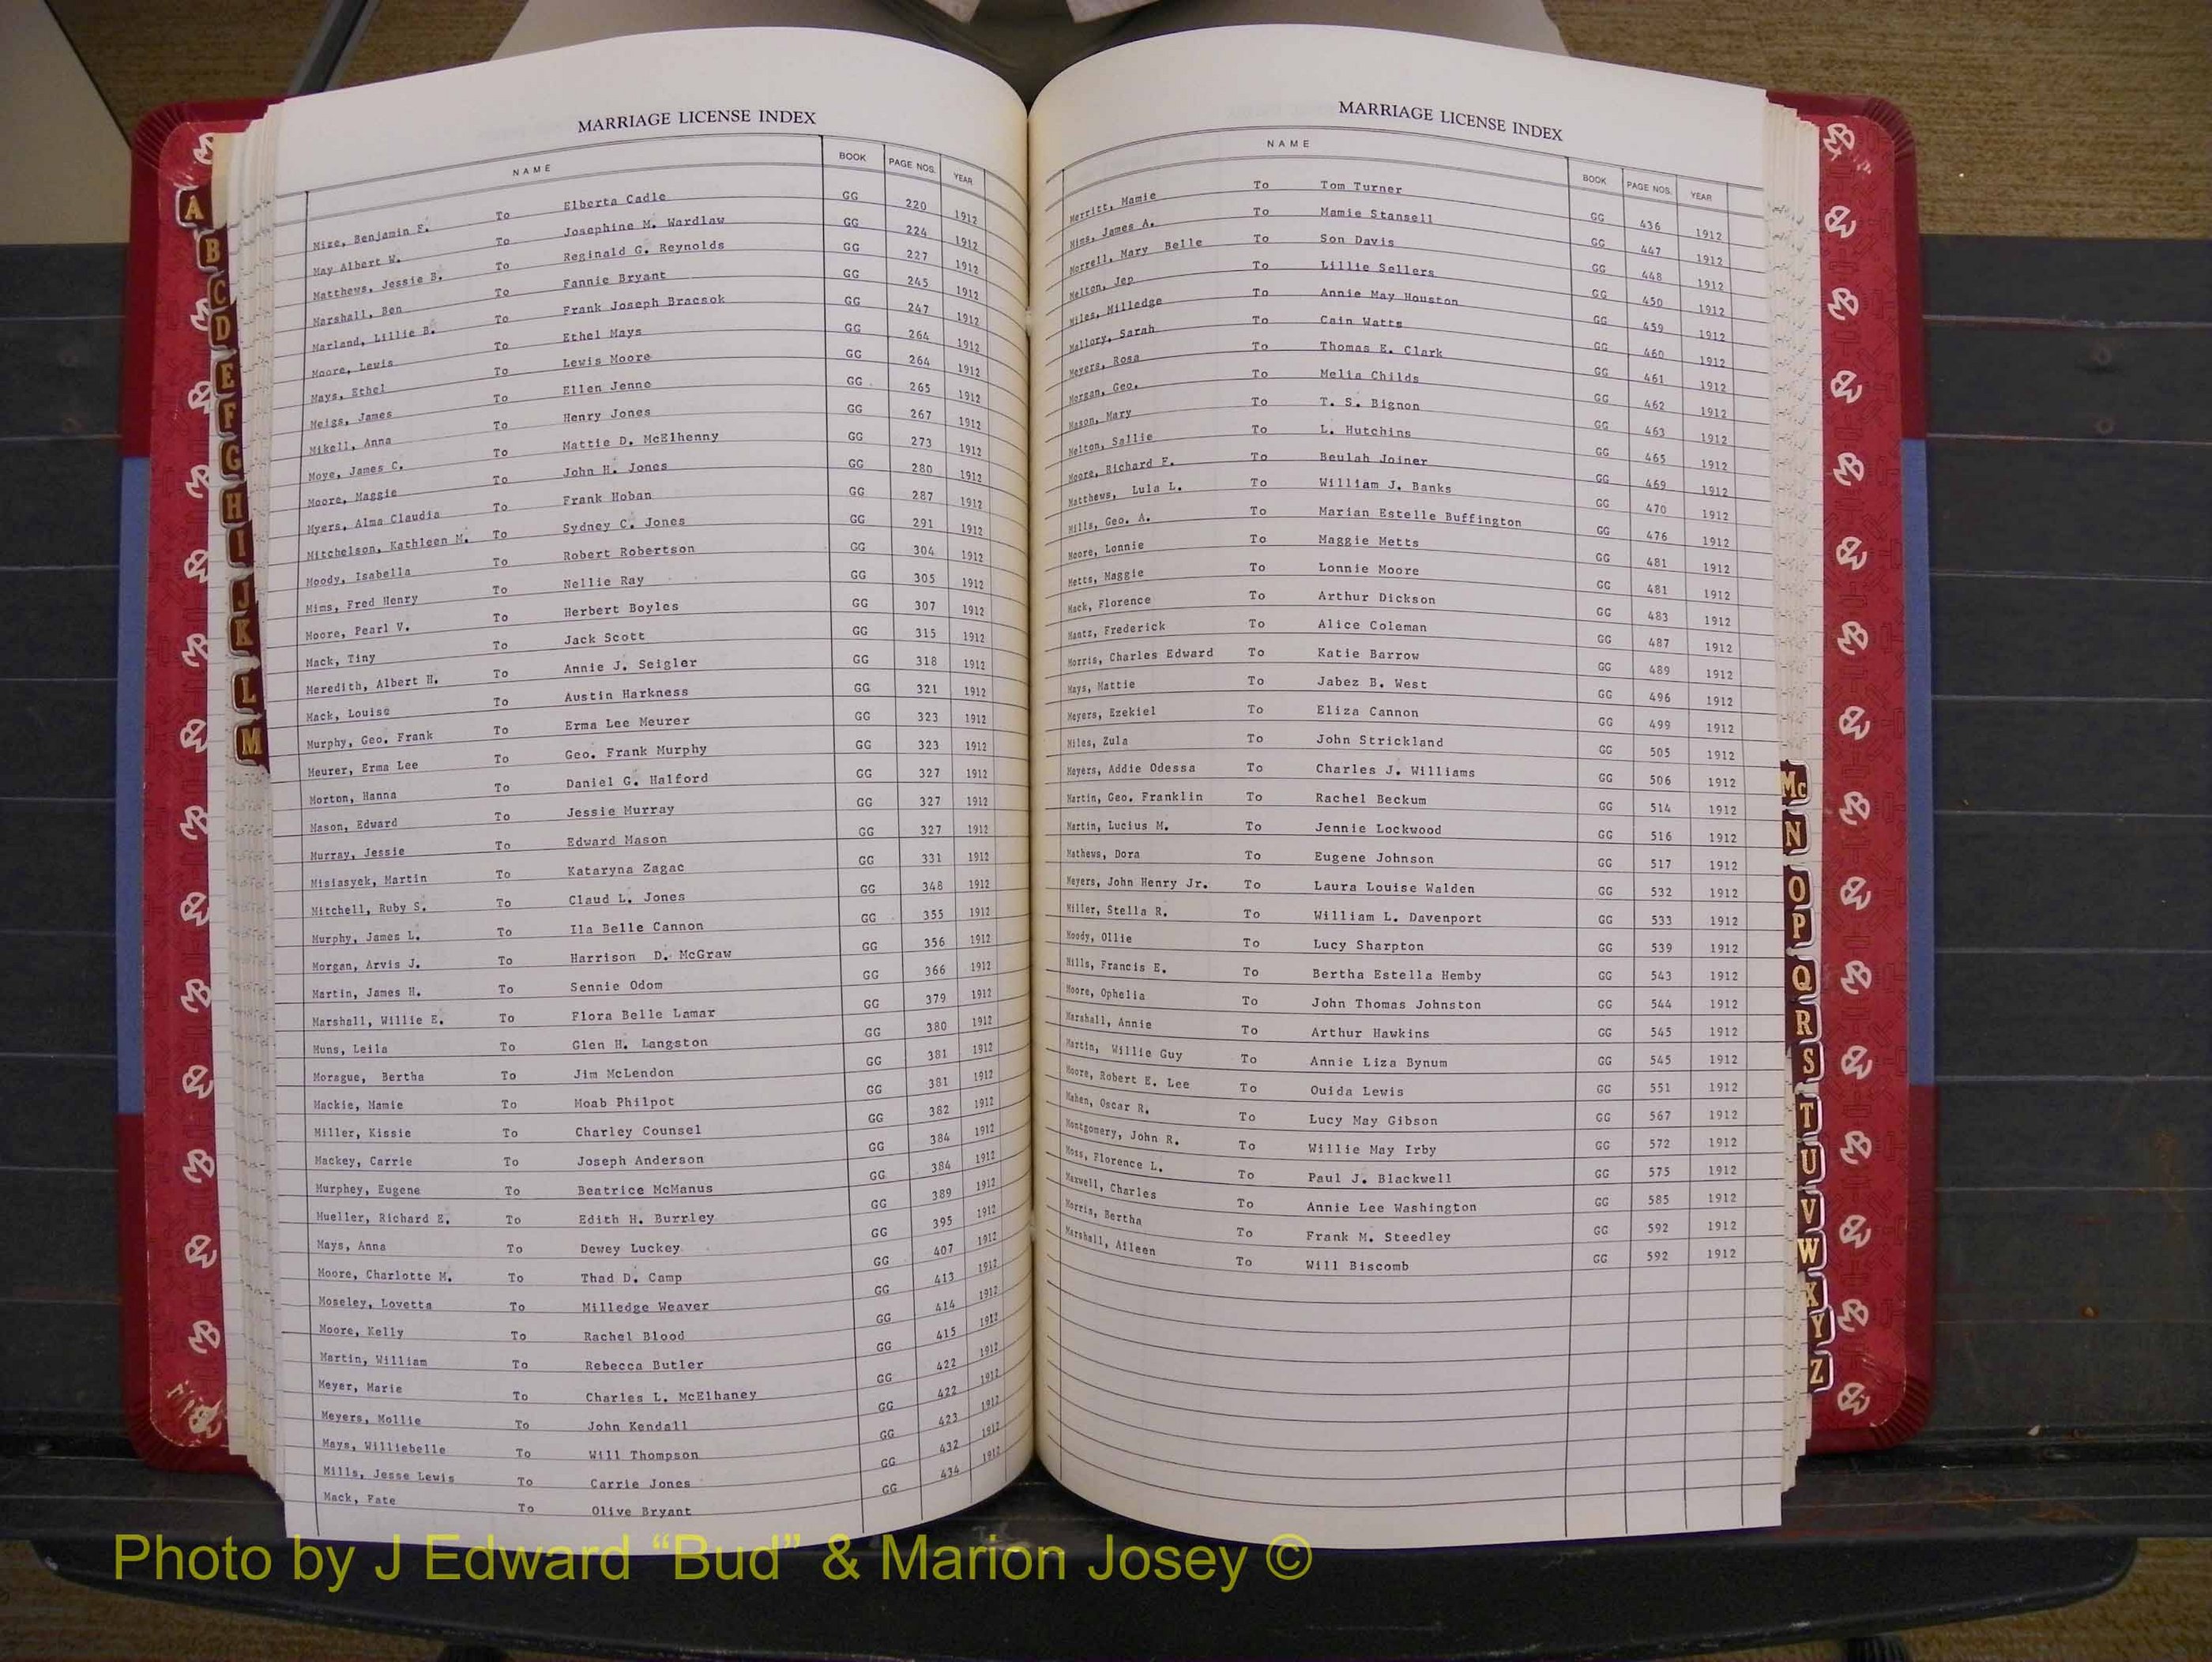 MARRIAGE LICENSE INDEX
NAME BOOK PAGE NOS. YEAR
Mize, Benjamin F. To Elberta Cadle GG 220 1912
May Albert W. To Josephine M. Wardlaw GG 224 1912
Matthews, Jessie B. To Reginald G. Reynolds GG 227 1912
Marshall, Ben To Fannie Bryant GG 245 1912
Marland, Lillie B. To Frank Joseph Bracsok GG 247 1912
Moore, Lewis To Ethel Mays GG 264 1912
Mays, Ethel To Lewis Moore GG 264 1912
Meigs, James To Ellen Jenne GG 265 1912
Mikell, Anna To Henry Jones GG 267 1912
Moye, James C. To Mattie D. McElhenny GG 273 1912
Moore, Maggie To John H. Jones GG 280 1912
Myers, Alma Claudia To Frank Hoban GG 287 1912
Mitchelson, Kathleen M. To Sydney C. Jones GG 291 1912
Moody, Isabella To Robert Robertson GG 304 1912
Mims, Fred Henry To Nellie Ray GG 305 1912
Moore, Pearl V. To Herbert Boyles GG 307 1912
Mack, Tiny To Jack Scott GG 315 1912
Meredith, Albert H. To Annie J. Seigler GG 318 1912
Mack, Louise To Austin Harkness GG 321 1912
Murphy, Geo. Frank To Erma Lee Meurer GG 323 1912
Meurer, Erma Lee To Geo. Frank Murphy GG 323 1912
Morton, Hanna To Daniel G. Halford GG 327 1912
Mason, Edward To Jessie Murray GG 327 1912
Murray, Jessie To Edward Mason GG 327 1912
Misiasyek, Martin To Kataryna Zagac GG 331 1912
Mitchell, Ruby S. To Claud L. Jones GG 348 1912
Murphy, James L. To Ila Belle Cannon GG 355 1912
Morgan, Arvis J. To Harrison D. McGraw GG 356 1912
Martin, James H. To Sennie Odom GG 366 1912
Marshall, Willie E. To Flora Belle Lamar GG 379 1912
Muns, Leila To Glen H. Langston GG 380 1912
Moragne, Bertha To Jim McLendon GG 381 1912
Mackie, Mamie To Moab Philpot GG 381 1912
Miller, Kissie To Charley Counsel GG 382 1912
Mackey, Carrie To Joseph Anderson GG 384 1912
Murphey, Eugene To Beatrice McManus GG 384 1912
Mueller, Richard E. To Edith H. Burrley GG 389 1912
Mays, Anna To Dewey Luckey GG 395 1912
Moore, Charlotte M. To Thad D. Camp GG 407 1912
Moseley, Lovetta To Milledge Weaver GG 413 1912
Moore, Kelly To Rachel Blood GG 414 1912
Martin, William To Rebecca Butler GG 415 1912
Meyer, Marie To Charles L. McElhaney GG 422 1912
Meyers, Mollie To John Kendall GG 422 1912
Mays, Williebelle To Will Thompson GG 423 1912
Mills, Jesse Lewis To Carrie Jones GG 432 1912
Mack, Fate To Olive Bryant GG 434 1912
MARRIAGE LICENSE INDEX
NAME BOOK PAGE NOS. YEAR
Merritt, Mamie To Tom Turner GG 436 1912
Mims, James A. To Mamie Stansell GG 447 1912
Morrell, Mary Belle To Son Davis GG 448 1912
Melton, Jep To Lillie Sellers GG 450 1912
Miles, Milledge To Annie May Houston GG 459 1912
Mallory, Sarah To Cain Watts GG 460 1912
Meyers, Rosa To Thomas E. Clark GG 461 1912
Morgan, Geo. To Melia Childs GG 462 1912
Mason, Mary To T. S. Bignon GG 463 1912
Melton, Sallie To L. Hutchins GG 465 1912
Moore, Richard F. To Beulah Joiner GG 469 1912
Matthews, Lula L. To William J. Banks GG 470 1912
Mills, Geo. A. To Marian Estelle Buffington GG 476 1912
Moore, Lonnie To Maggie Metts GG 481 1912
Metts, Maggie To Lonnie Moore GG 481 1912
Mack, Florence To Arthur Dickson GG 483 1912
Mantz, Frederick To Alice Coleman GG 487 1912
Morris, Charles Edward To Katie Barrow GG 489 1912
Mays, Mattie To Jabez B. West GG 496 1912
Meyers, Ezekiel To Eliza Cannon GG 499 1912
Miles, Zula To John Strickland GG 505 1912
Meyers, Addie Odessa To Charles J. Williams GG 506 1912
Martin, Geo. Franklin To Rachel Beckum GG 514 1912
Martin, Lucius M. To Jennie Lockwood GG 516 1912
Mathews, Dora To Eugene Johnson GG 517 1912
Meyers, John Henry Jr. To Laura Louise Walden GG 532 1912
Miller, Stella R. To William L. Davenport GG 533 1912
Moody, Ollie To Lucy Sharpton GG 539 1912
Mills, Francis E. To Bertha Estella Hemby GG 543 1912
Moore, Ophelia To John Thomas Johnston GG 544 1912
Marshall, Annie To Arthur Hawkins GG 545 1912
Martin, Willie Guy To Annie Liza Bynum GG 545 1912
Moore, Robert E. Lee To Ouida Lewis GG 551 1912
Mahen, Oscar R. To Lucy May Gibson GG 567 1912
Montgomery, John R. To Willie May Irby GG 572 1912
Moss, Florence L. To Paul J. Blackwell GG 575 1912
Maxwell, Charles To Annie Lee Washington GG 585 1912
Morris, Bertha To Frank M. Steedley GG 592 1912
Marshall, Aileen To Will Biscomb GG 592 1912
A
B
C
D
E
F
G
H
I
J
K
L
M
Mc
N
O
P
Q
R
S
T
U
V
W
X
Y
Z
Photo by J Edward “Bud” & Marion Josey ©